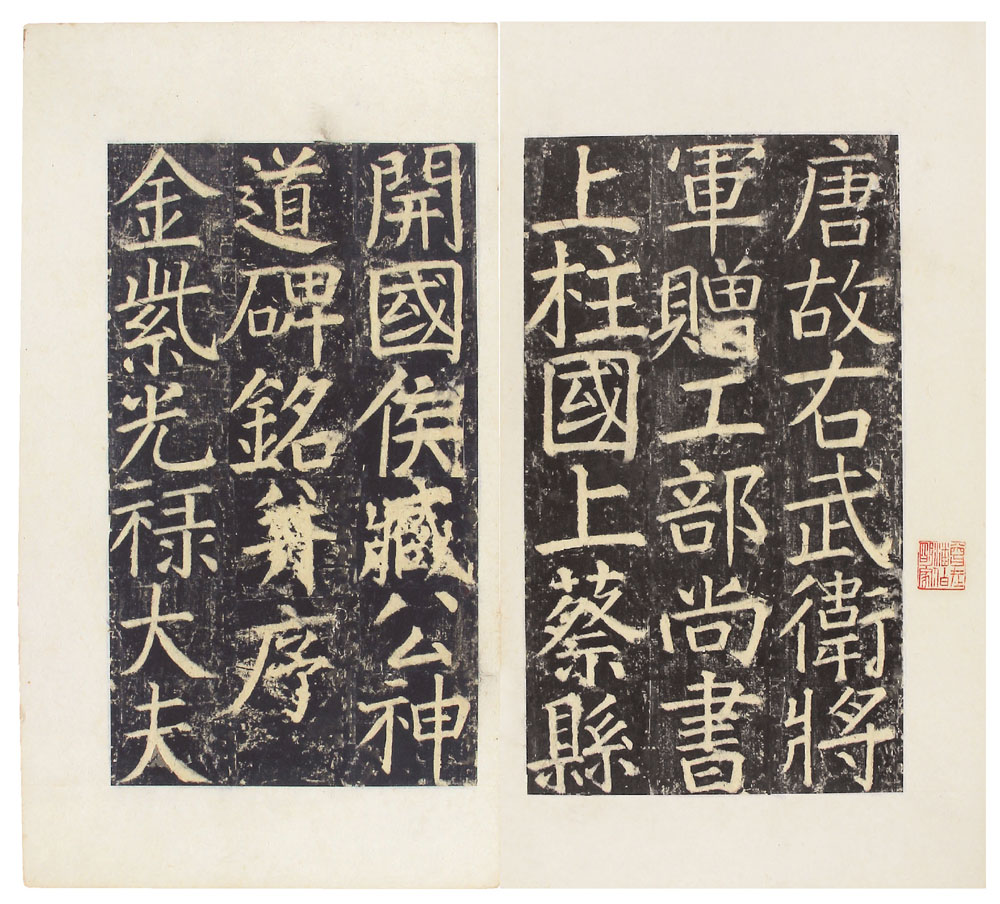 唐故右武衛將
軍贈工部尚書
上柱國上蔡縣
開國侯臧公神
道碑銘并序
金紫光祿大夫